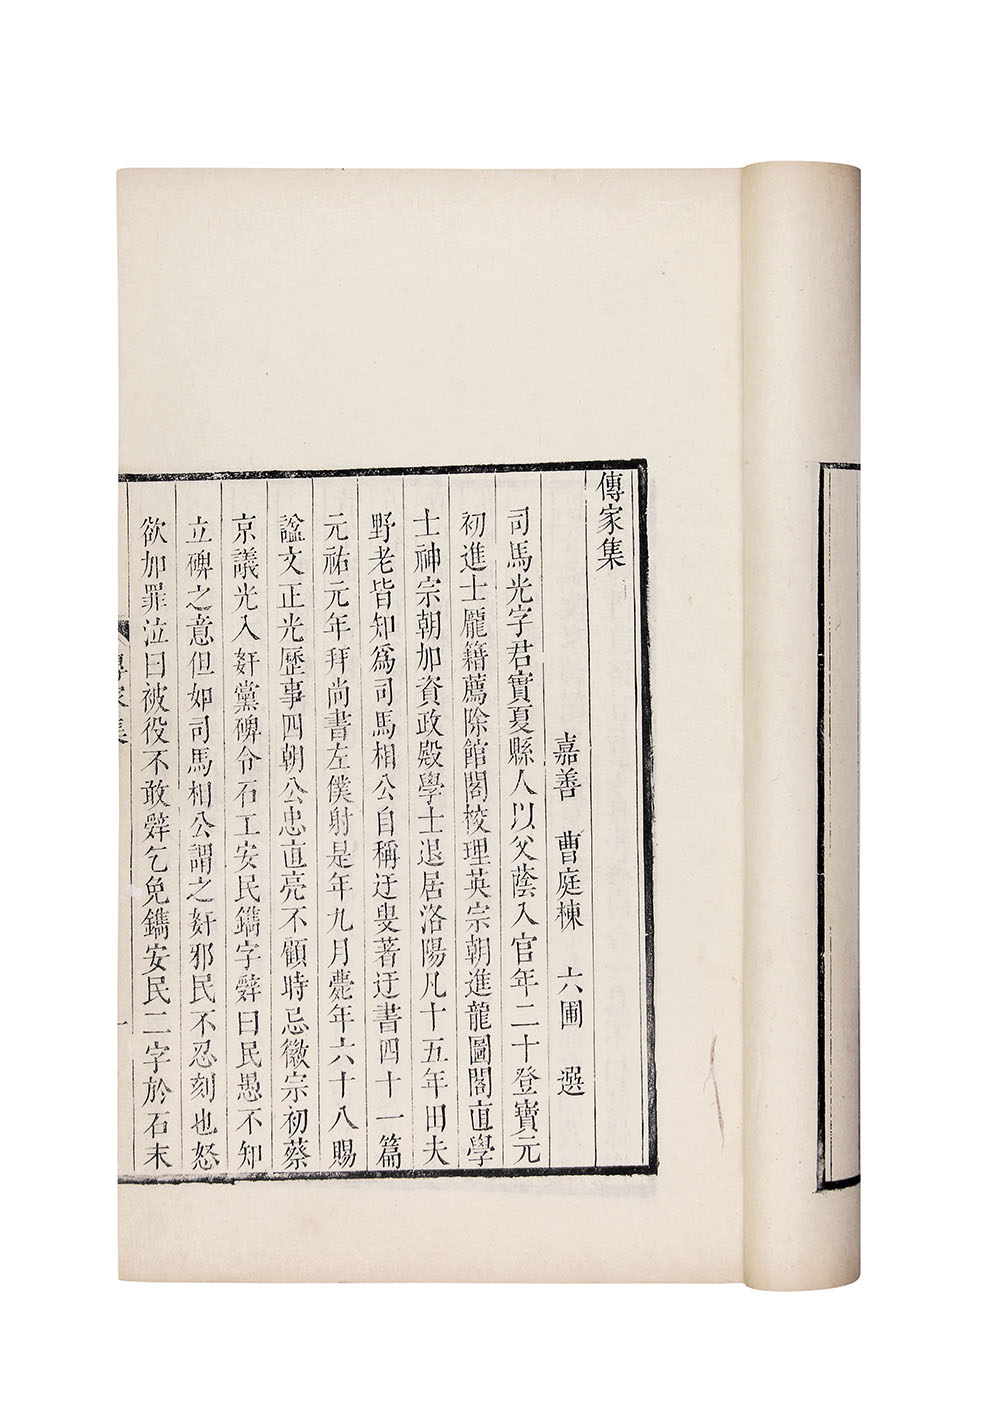 傳家集
嘉善 曹庭棟 六圃 選
司馬光字君實夏縣人以父蔭入官年二十登寶元
初進士龐籍薦除館閣校理英宗朝進龍圖閣直學
士神宗朝加資政殿學士退居洛陽凡十五年田夫
野老皆知爲司馬相公自稱迂叟著迂書四十一篇
元祐元年拜尚書左僕射是年九月薨年六十八賜
諡文正光歷事四朝公忠直亮不顧時忌徽宗初蔡
京議光入姧黨碑令石工安民鐫字辤曰民愚不知
立碑之意但如司馬相公謂之姧邪民不忍刻也怒
欲加罪泣曰被役不敢辤乞免鐫安民二字於石末
傳家集
一